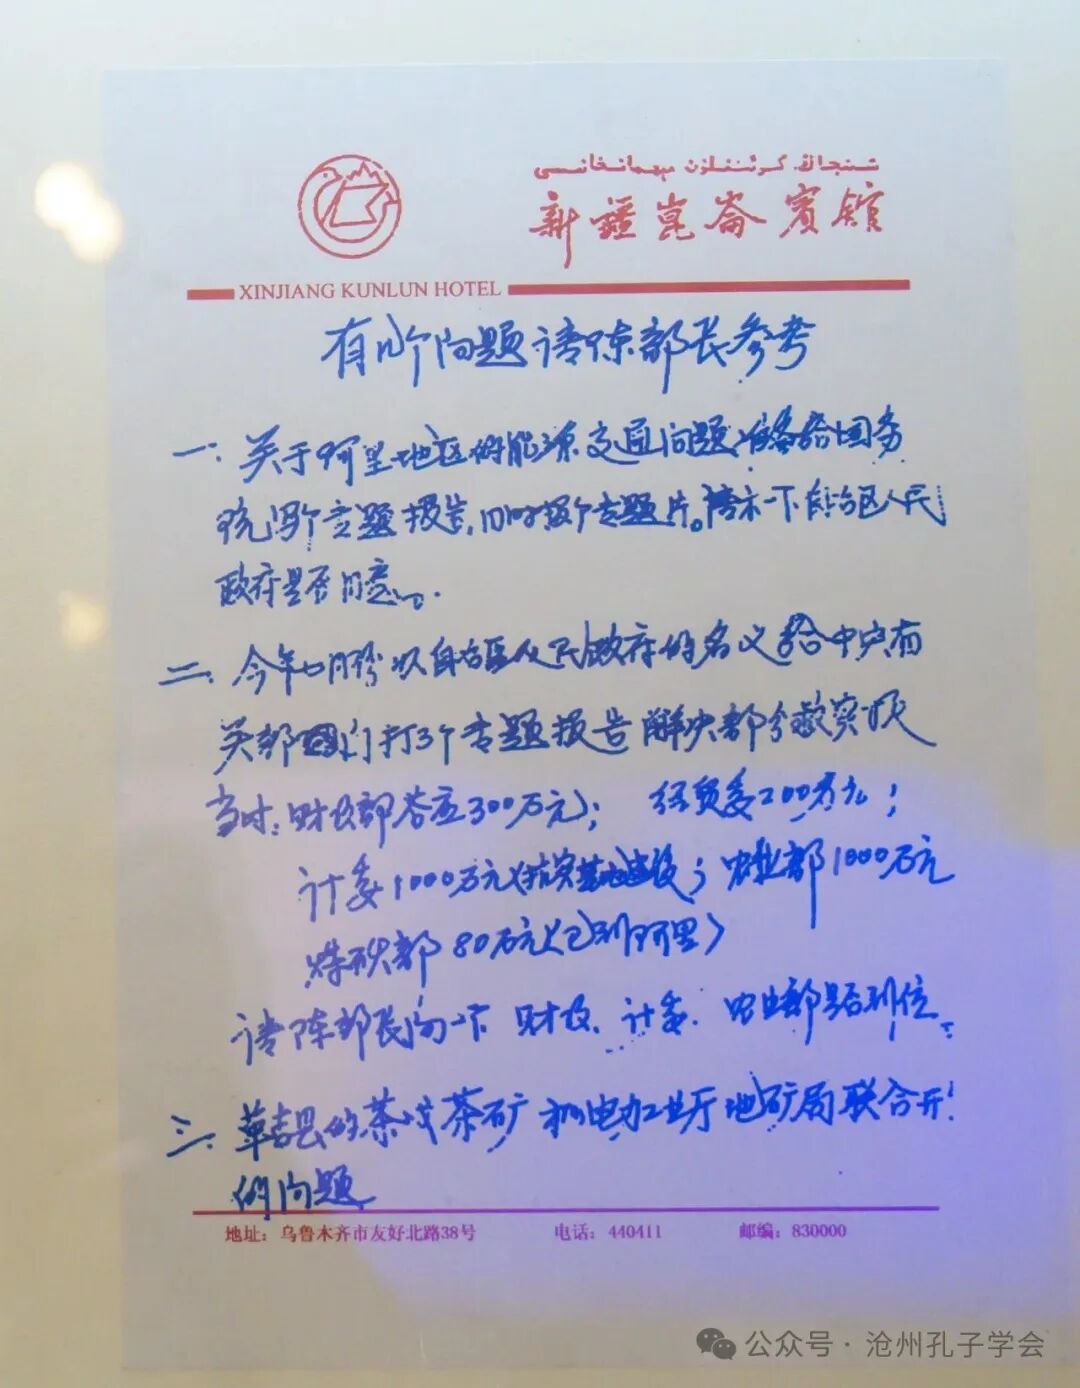 شىنجاڭ كۇئېنلۇن مېھمانخانىسى
新疆崑崙賓館
XINJIANG KUNLUN HOTEL
有几个问题请陈部长参考
一.关于阿里地区的能源交通问题,准备给国务
院写个专题报告,同时报个专题片。请示一下自治区人民
政府是否同意。
二.今年七月份以自治区人民政府的名义给中央有
关部门打3个专题报告解决部分救灾
当时:财政部答应300万元; 经贸委200万元;
计委1000万元(抗灾基地建设;农业部1000万元
煤炭部80万元(已到阿里)
请陈部长问一下财政、计委、农业部是否到位。
三.革吉县的茶 茶矿 机电工业厅地矿局联合开
的问题
地址:乌鲁木齐市友好北路38号 电话:440411 邮编:830000
公众号·沧州孔子学会